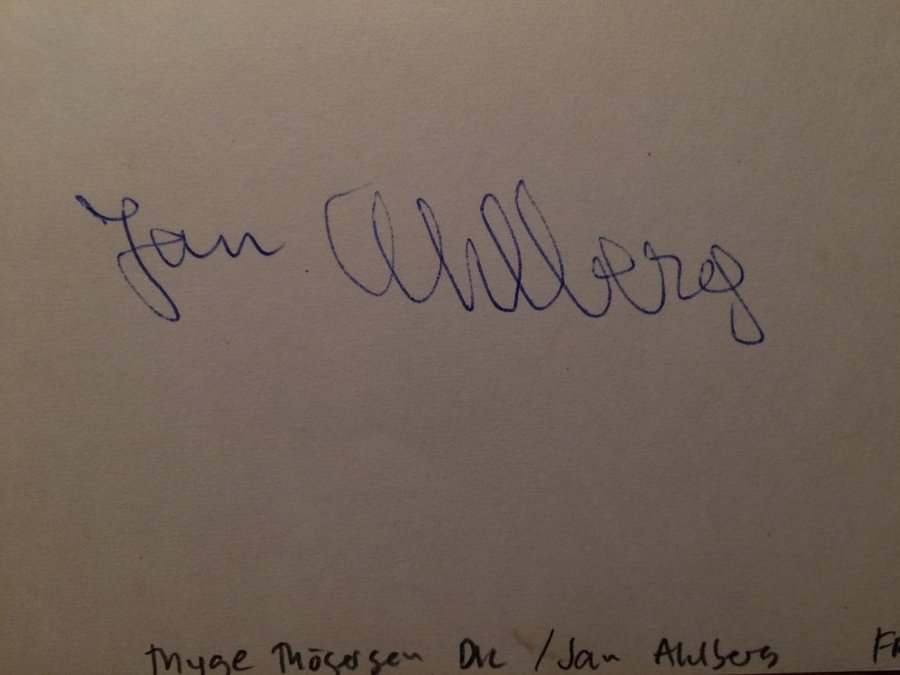 Jan Ahlberg
Thyge Thögersen DK /Jan Ahlberg